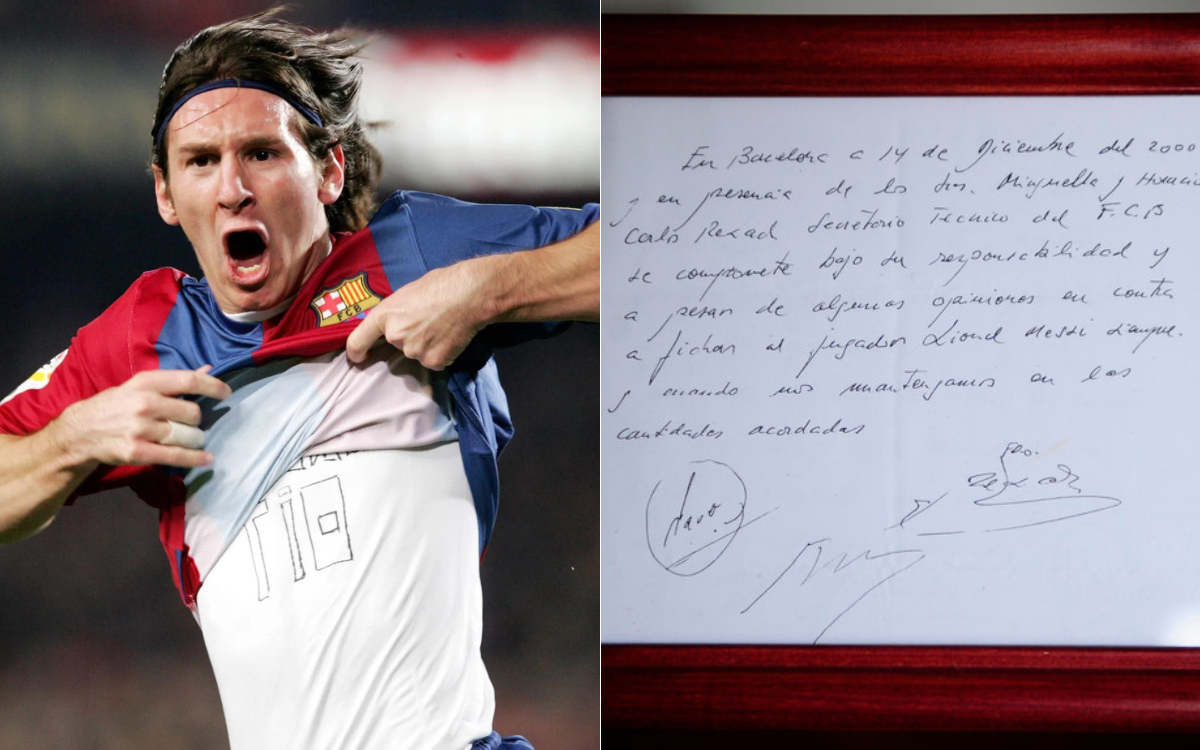 FCB
TIO
En Barcelona a 14 de Diciembre del 2000
y en presencia de los Sres. Minguella y Horacio
Carlos Rexach Secretario Técnico del F.C.B
se compromete bajo su responsabilidad y
a pesar de algunas opiniones en contra
a fichar al jugador Lionel Messi siempre
y cuando nos mantengamos en las
cantidades acordadas
Fdo.